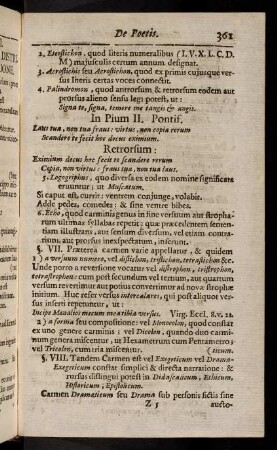 De Poetis. 361
2. Eteostichon, quod literis numeralibus (I. V. X. L. C. D.
M) majusculis certum annum designat.
3. Acrostichis seu Acrostichon, quod ex primis cujusque versus literis
certas voces connectit.
4. Palindromon, quod antrorsum & retrorsum eodem aut
prorsus alieno sensu legi potest, ut:
Signa te, signa, temere me tangis & angis.
In Pium II. Pontif.
Laus tua, non tua fraus: virtus, non copia rerum
Scandere te fecit hoc decus eximium.
Retrorsum:
Eximium decus hoc fecit te scandere rerum
Copia, non virtus: fraus tua, non tua laus.
5. Logogriphus, quo diversa ex eodem nomine significata
eruuntur; ut Muscatum.
Si caput est, currit: ventrem conjunge, volabit.
Adde pedes, comedes: & sine ventre bibes.
6. Echo, quod carminis agens in fine versuum aut strophaarum
ultimas syllabas repetit; quæ præcedentem sententiam
illustrans, aut sensum diversum, vel etiam contrarium,
aut prorsus inexpectatum, inferunt.
§. VII. Præterea carmen varie appellatur, & quidem
1) a versuum numero, vel distichon, tristichon, tetrastichon &c.
Unde porro a reversione vocatur vel distrophon, tristrophon,
tetrastrophon: cum post secundum vel tertium, aut quartum
versum revertimur aut potius convertimur ad novæ strophæ
initium. Huc refer versus intercalares, qui post aliquot versus
inserti repetuntur, ut:
Incipe Mænalios mecum mea tibia versus. Virg. Ecl. 8. v. 21.
2) a forma seu compositione: vel Monocolon, quod constat
ex uno genere carminis: vel Dicolon, quando duo carminum
genera miscentur, ut Hexametrum cum Pentametro:
vel Tricolon, cum tria miscentur. (ticum.
§. VIII. Tandem Carmen est vel Exegeticum vel Drama-
Exegeticum constat simplici & directa narratione: &
rursus distingui potest in Didascalicum, Ethicum,
Historicum, Epistolicum.
Carmen Dramaticum seu Drama sub personis fictis sine
Z 5 aucto-